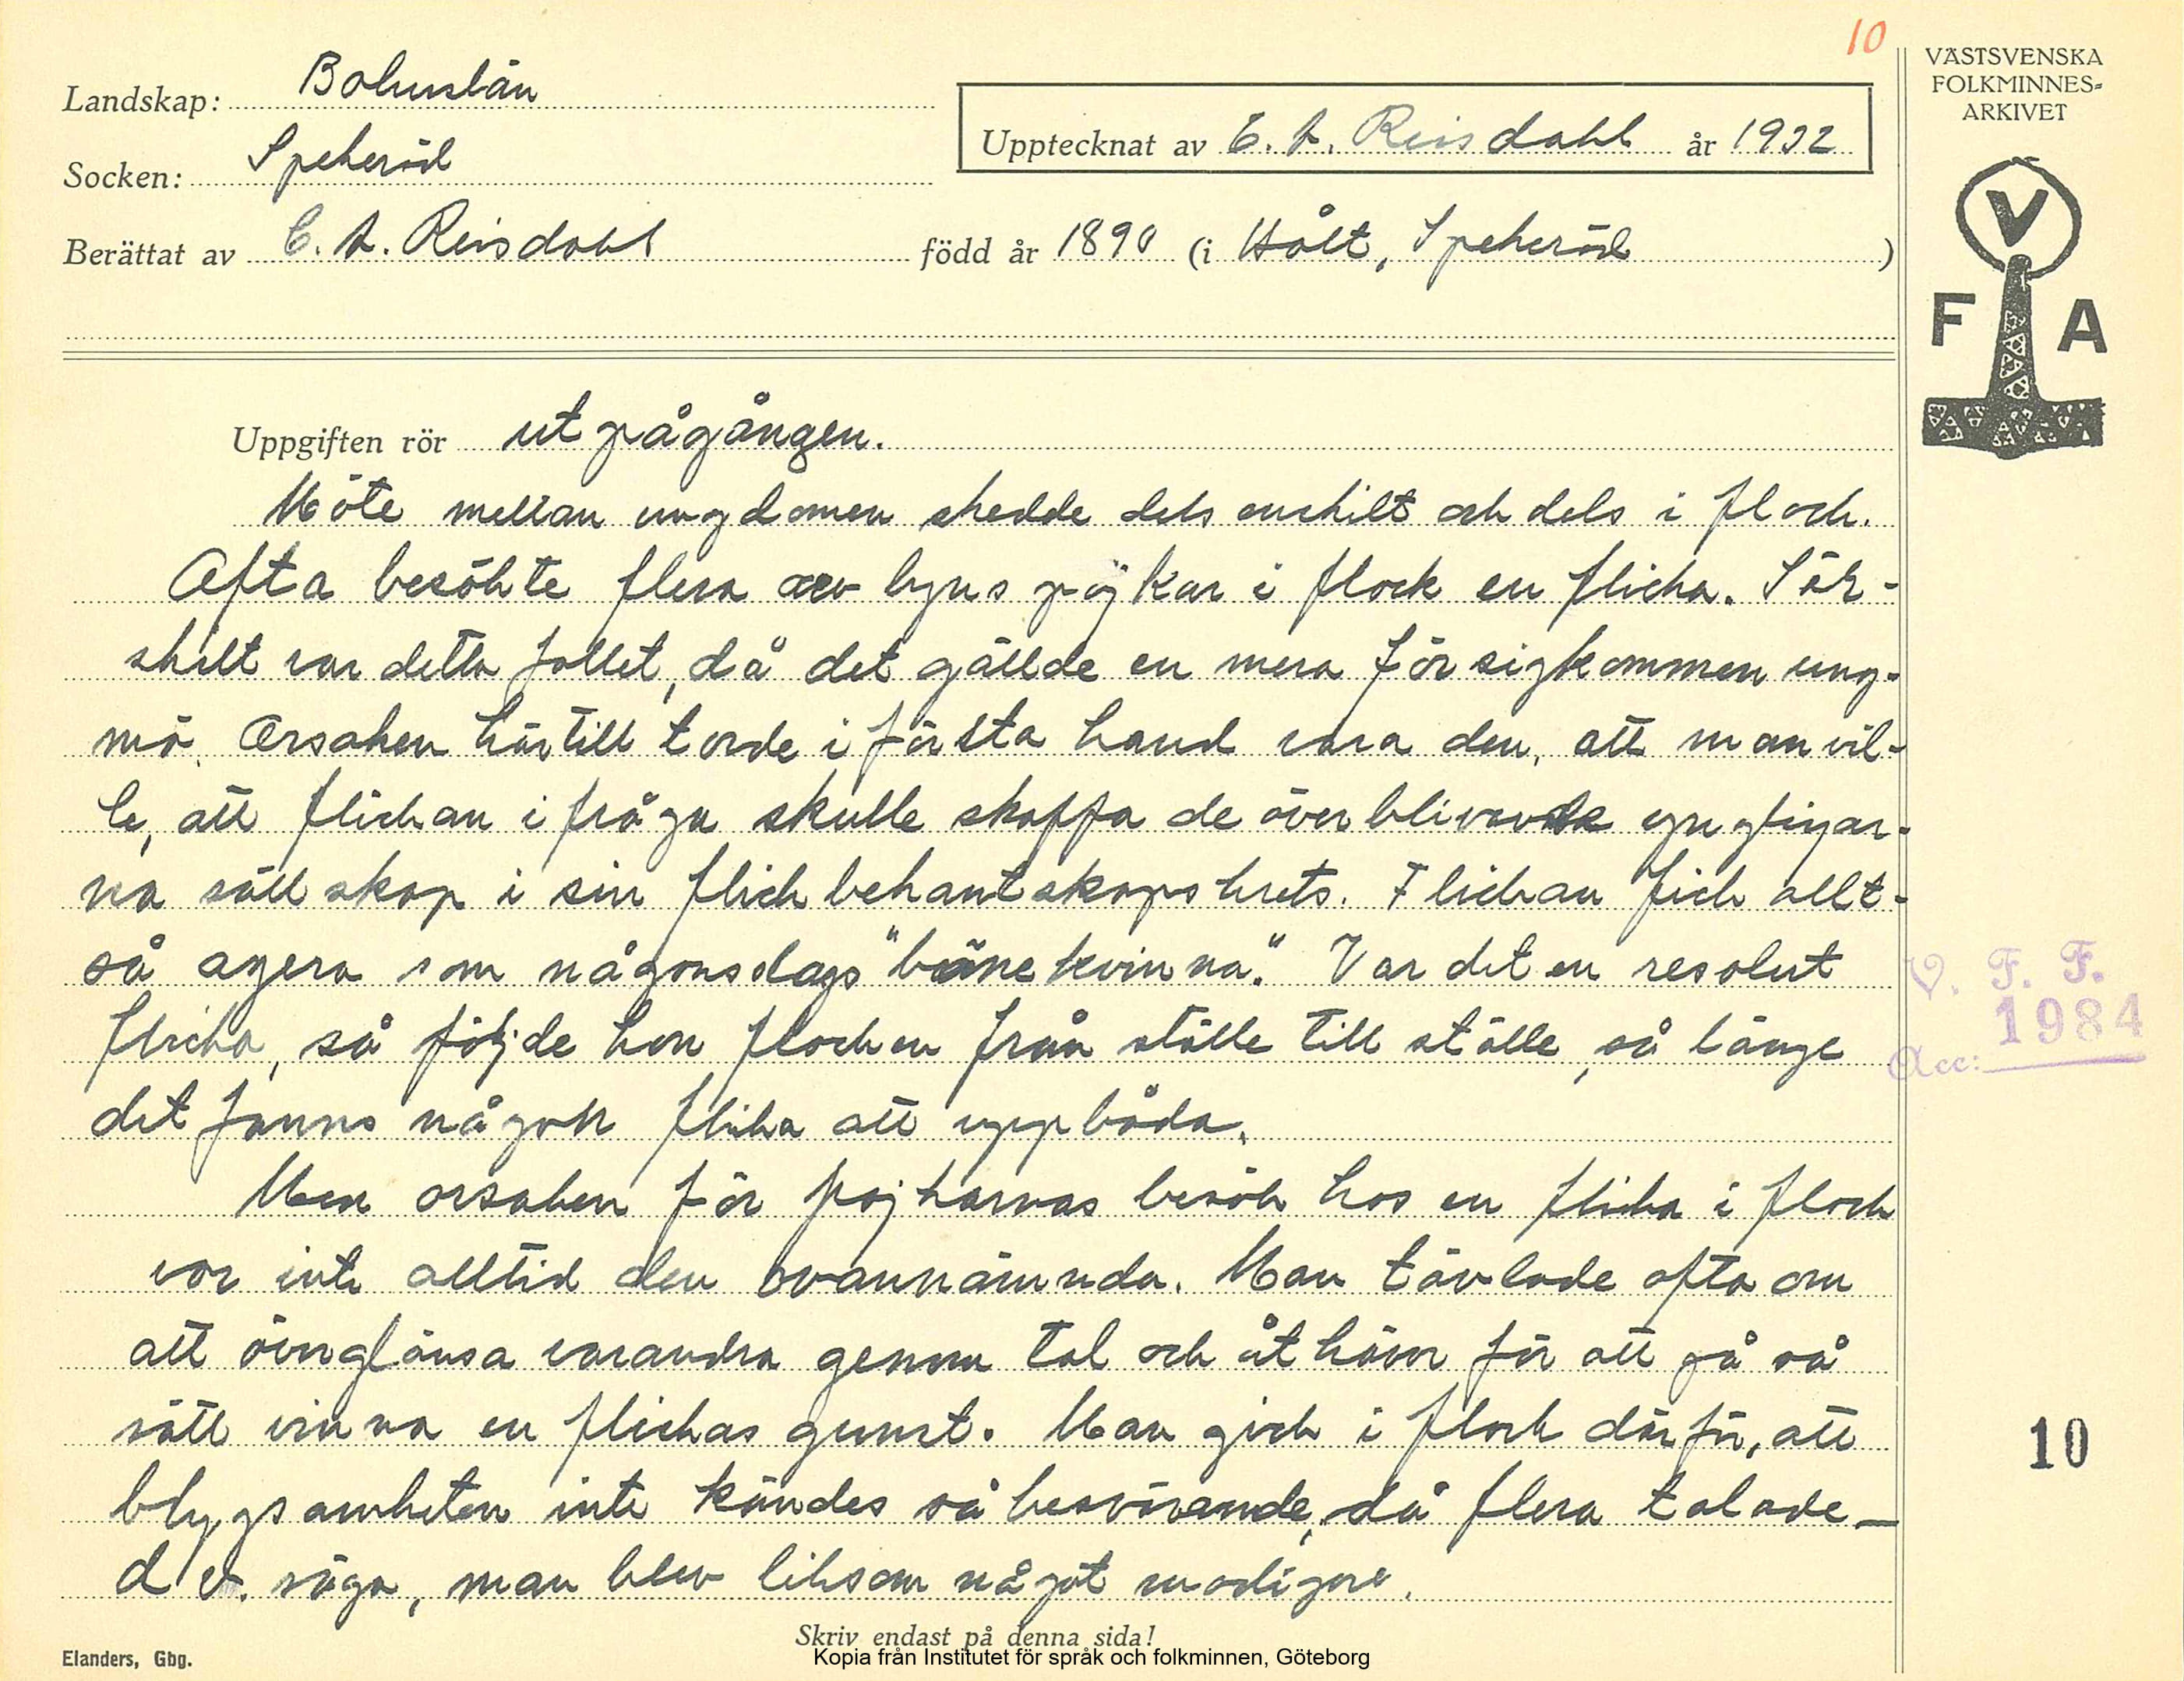 10
VÄSTSVENSKA
FOLKMINNES-
ARKIVET
Landskap: Bohuslän
Upptecknat av C. A. Reisdahl år 1932
Socken: Spekeröd
Berättat av C. A. Reisdahl född år 1890 (i Hålt, Spekeröd)
V
F A
Uppgiften rör utpågången.
Möte mellan ungdomen skedde dels enskilt och dels i flock.
Ofta besökte flera av byns pojkar i flock en flicka. Sär-
skilt var detta fallet, då det gällde en mera försigkommen ung-
mö. Orsaken härtill torde i första hand vara den, att man vil-
le, att flickan i fråga skulle skaffa de överblivande ynglingar-
na sällskap i sin flickbekantskapskrets. Flickan fick allt-
så agera som någonslags "bönekvinna". Var det en resolut
flicka, så följde hon flocken från ställe till ställe, så länge
det fanns någon flicka att uppbåda.
Men orsaken för pojkarnas besök hos en flicka i flock
var inte alltid den ovannämnda. Man tävlade ofta om
att överglänsa varandra genom tal och åthävor för att på så
sätt vinna en flickas gunst. Man gick i flock därför, att
blygsamheten inte kändes så besvärande, då flera talade –
d v. säga, man blev liksom något modigare.
V. F. F.
1984
Acc:
10
Skriv endast på denna sida!
Elanders, Gbg.
Kopia från Institutet för språk och folkminnen, Göteborg